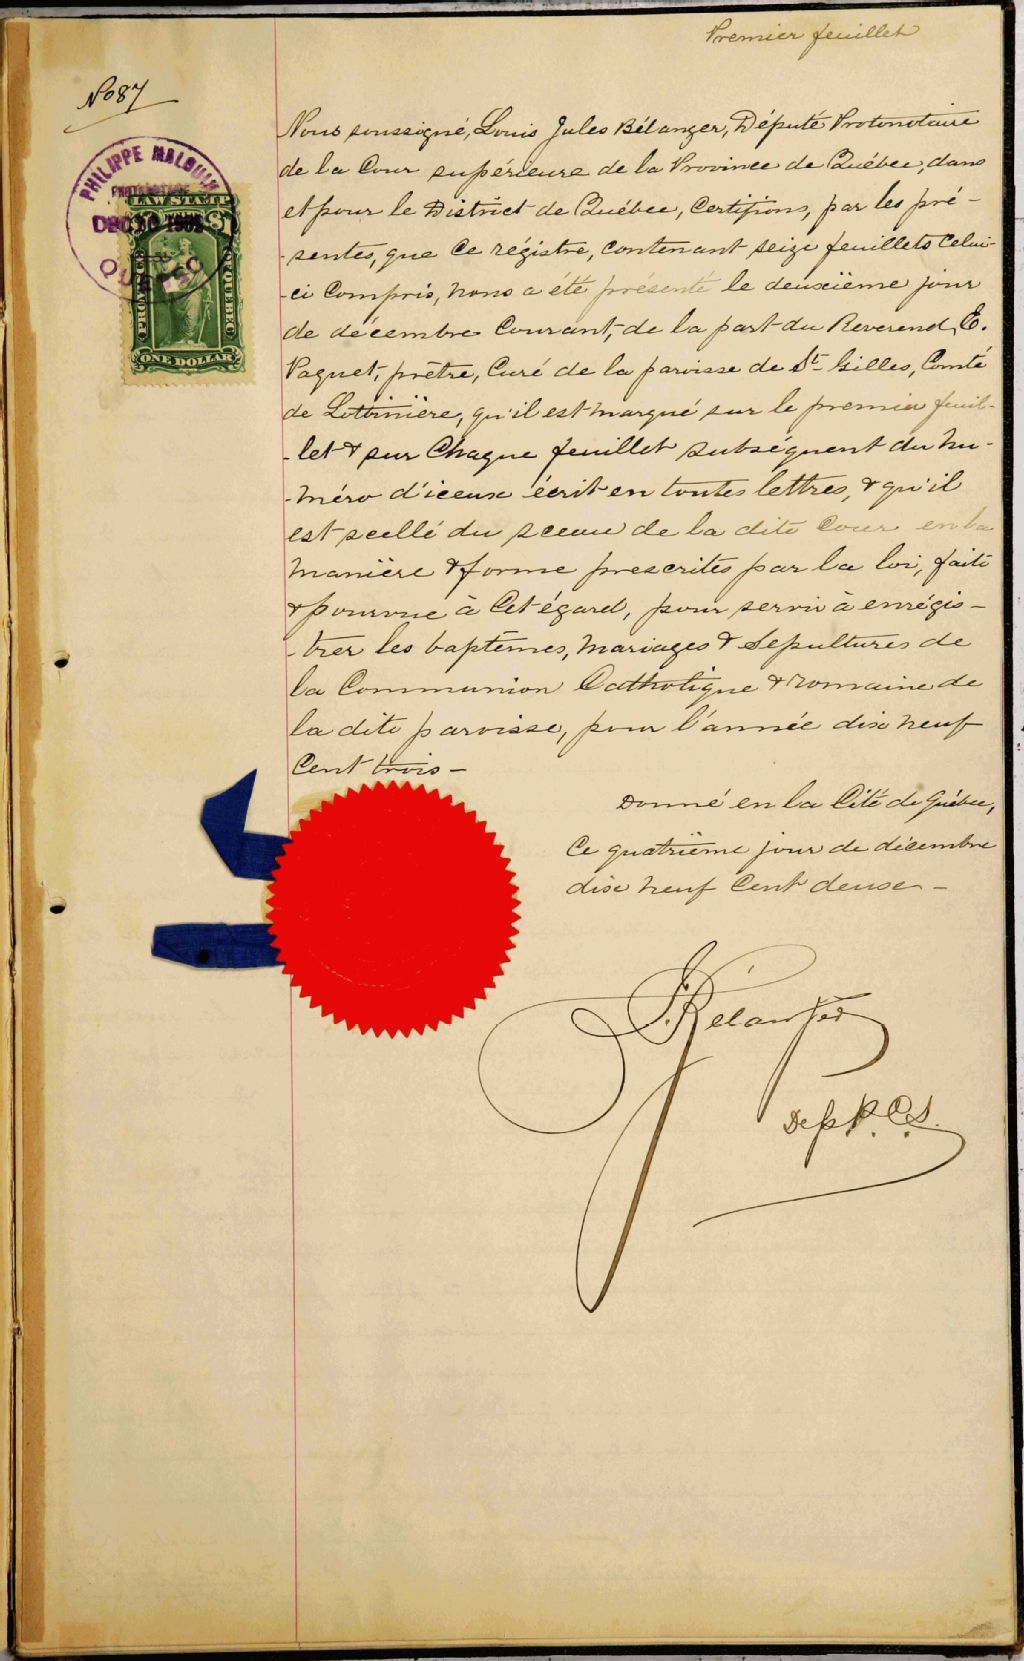 Premier feuillet
No 87
PHILIPPE MALOUIN
PROTONOTAIRE
DEC 30 1902
QUEBEC
LAW STAMP
PROVINCE
OF QUEBEC
ONE DOLLAR
Nous soussigné, Louis Jules Bélanger, Député Protonotaire
de la Cour supérieure de la Province de Québec, dans
et pour le District de Québec, Certifions, par les pré-
-sentes, que ce régistre, contenant seize feuillets Celui-
-ci Compris, nous a été présenté le deuxième jour
de décembre Courant, de la part du Reverend E.
Paquet, prêtre, Curé de la paroisse de St Gilles, Comté
de Lotbinière, qu'il est marqué sur le premier feuil-
-let & sur Chaque feuillet subséquent du nu-
-méro d'iceux écrit en toutes lettres, & qu'il
est scellé du sceau de la dite Cour en la
manière & forme prescrites par la loi, faite
& pourvue à Cet égard, pour servir à enrégis-
-trer les baptêmes, mariages & Sepultures de
la Communion Catholique & romaine de
la dite paroisse, pour l'année dix neuf
Cent trois -
Donné en la Cité de Québec,
Ce quatrième jour de décembre
dix neuf Cent deux -
J. Bélanger
Dep P.C.S.